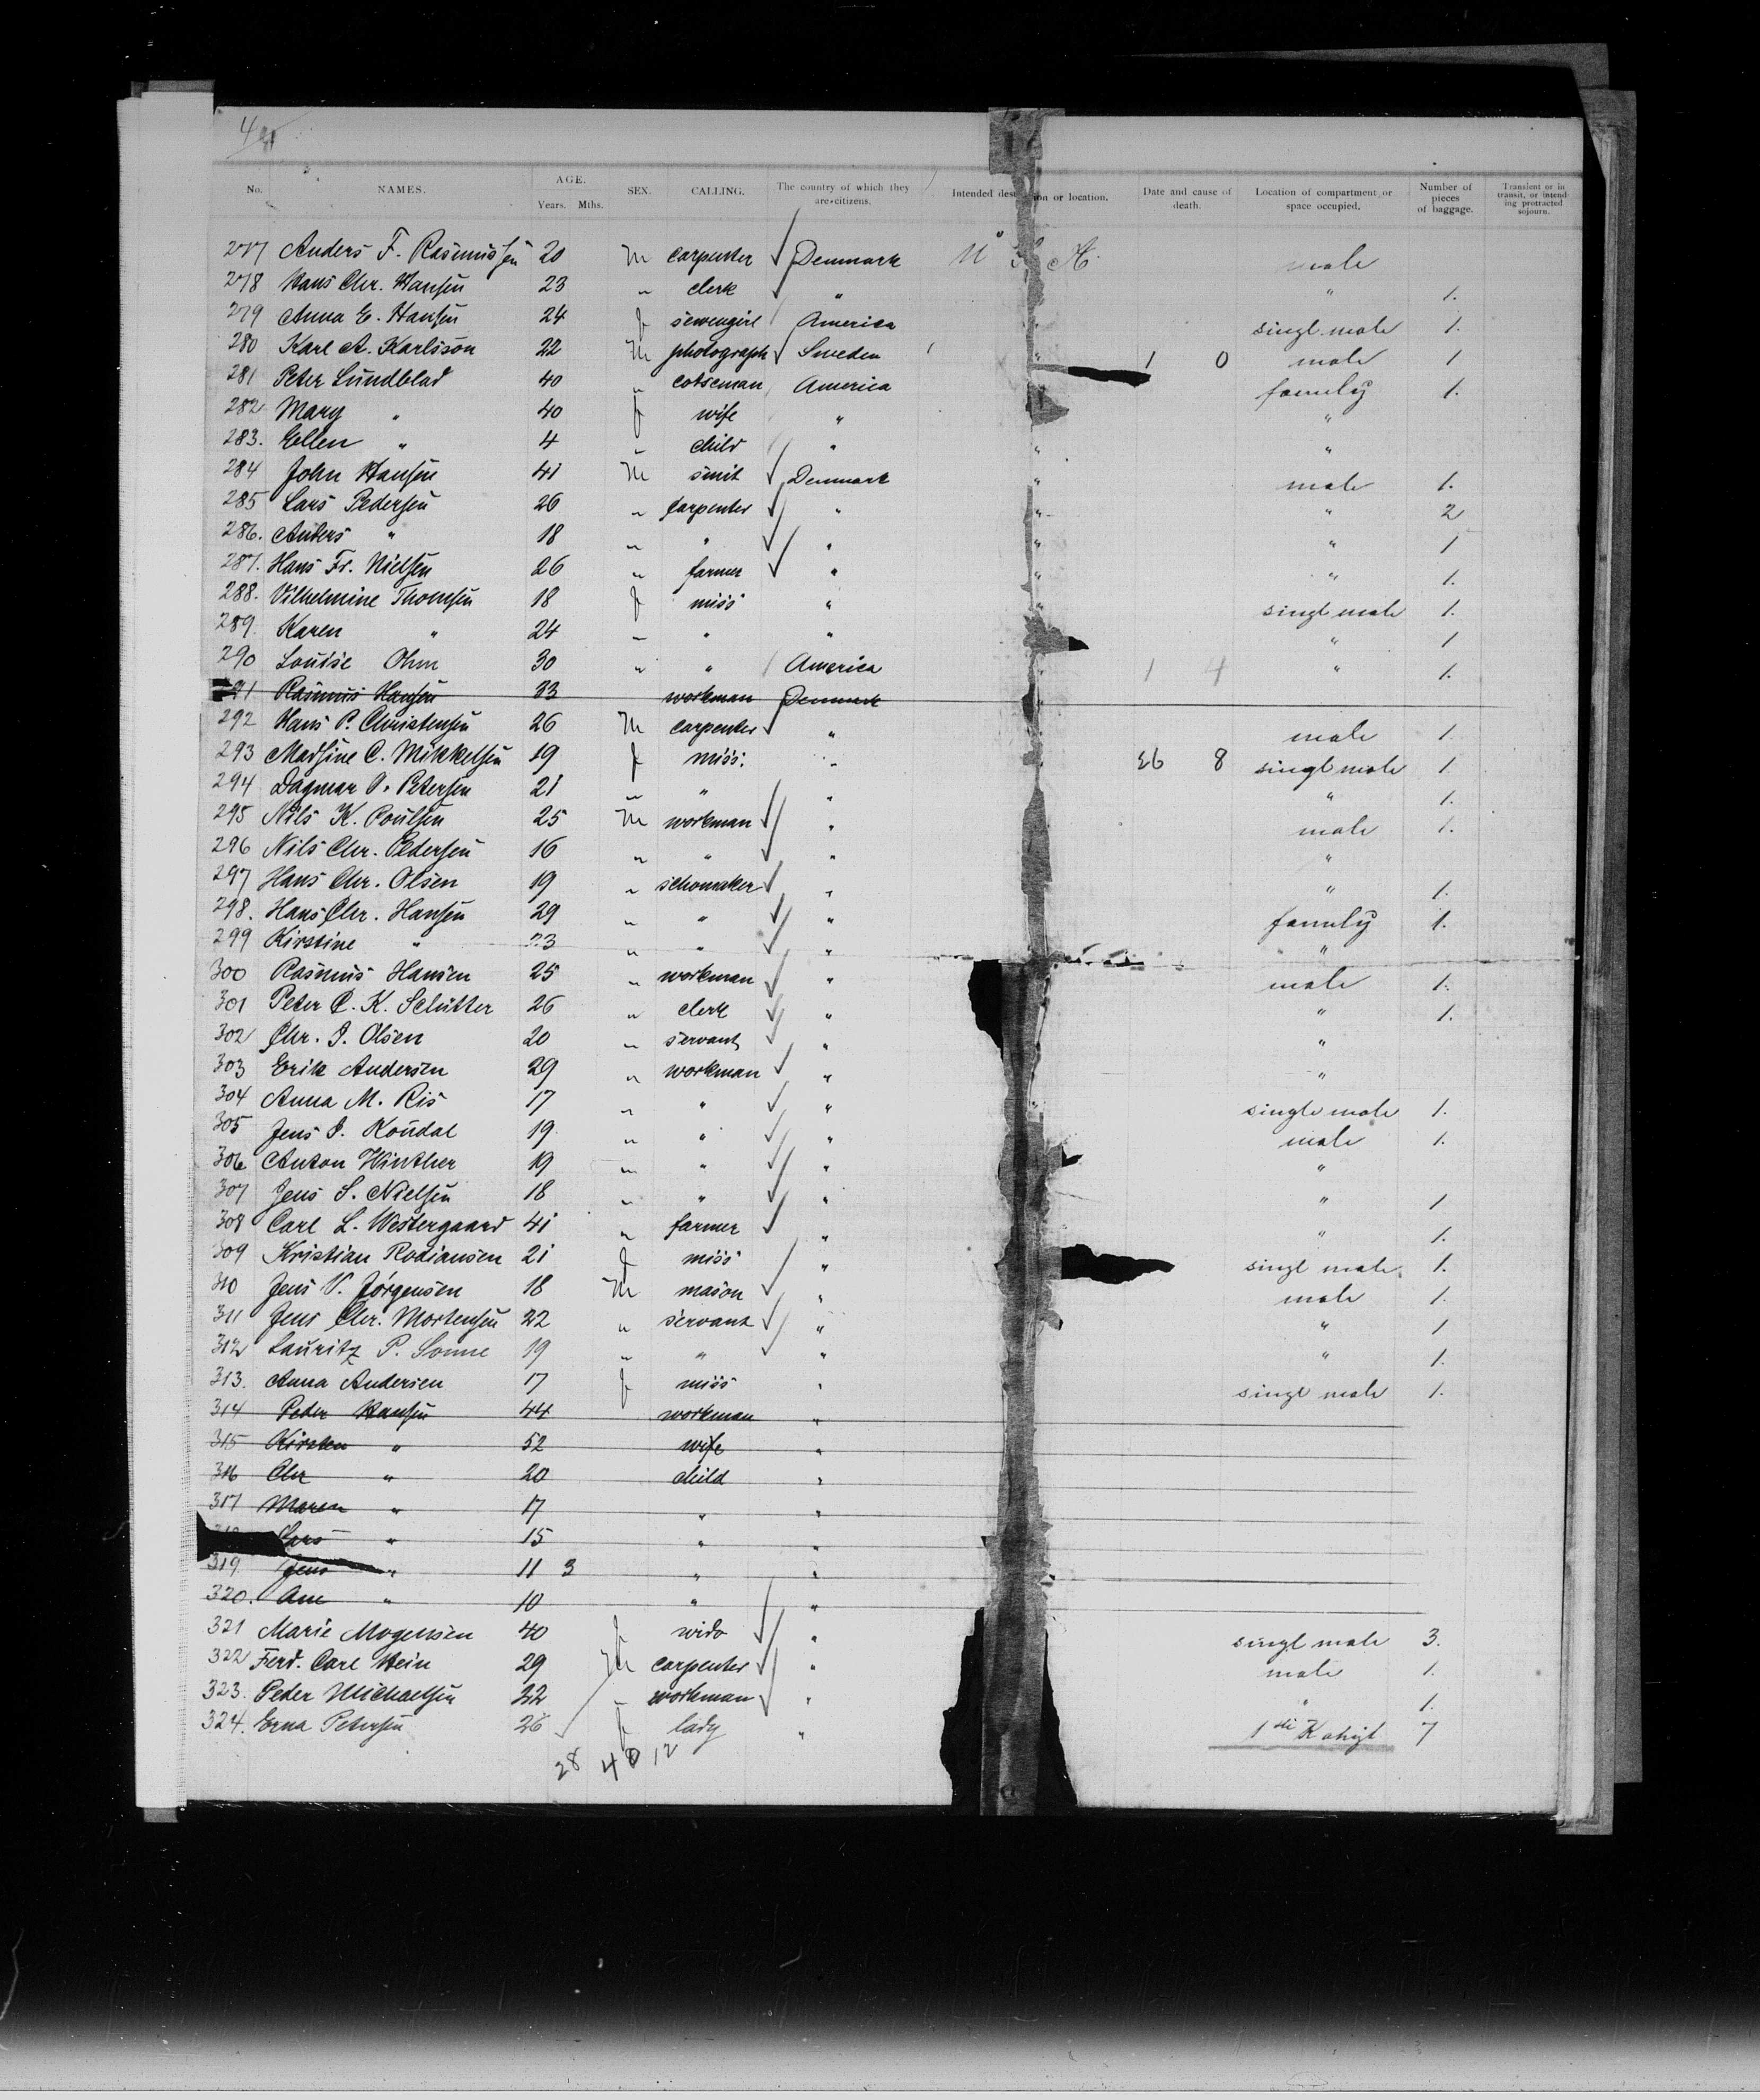 48
No. NAMES. AGE. Years. Mths. SEX. CALLING. The country of which they are citizens. Intended des on or location. Date and cause of death. Location of compartment or space occupied. Number of pieces of baggage. Transient or in transit, or intending protracted sojourn.
277 Anders F. Rasmussen 20 M carpenter Denmark U S A. male
278 Hans Chr. Hansen 23 " clerk " " 1.
279 Anna E. Hansen 24 f sewengirl America " singl male 1.
280 Karl A. Karlsson 22 M photograph Sweden " 1 0 male 1
281 Peter Lundblad 40 " cotseman America family 1.
282 Mary " 40 f wife " "
283. Ellen " 4 " child " " "
284 John Hansen 41 M smit Denmark " male 1.
285 Lars Pedersen 26 " carpenter " " " 2
286. Anders " 18 " " " " " 1
287. Hans Fr. Nielsen 26 " farmer " " " 1.
288. Vilhelmine Thomsen 18 f miss " " singl male 1.
289. Karen " 24 " " " " 1
290 Louise Ohm 30 " " America " 1 4 " 1.
291 Rasmus Hansen 33 workman Denmark
292 Hans P. Christensen 26 M carpenter " male 1.
293 Madsine C. Mikkelsen 19 f miss. " 36 8 singl male 1.
294 Dagmar V. Petersen 21 " " " " 1.
295 Nils K. Poulsen 25 M workman " male 1.
296 Nils Chr. Pedersen 16 " " " "
297 Hans Chr. Olsen 19 " schomaker " " 1.
298. Hans Chr. Hansen 29 " " " family 1.
299 Kirstine " 23 " " " "
300 Rasmus Hansen 25 " workman " male 1.
301 Peter C. K. Schütter 26 " clerk " " 1.
302 Chr. J. Olsen 20 " servant " "
303 Erik Andersen 29 " workman " "
304 Anna M. Ris 17 " " " " single male 1.
305 Jens J. Koudal 19 " " " male 1.
306 Anton Winther 19 " " " "
307 Jens S. Nielsen 18 " " " " 1
308 Carl L. Westergaard 41 " farmer " " 1.
309 Kristian Rodiansen 21 f miss " singl male 1.
310 Jens V. Jörgensen 18 M mason " male 1.
311 Jens Chr. Mortensen 22 " servant " " 1
312 Lauritz P. Sonne 19 " " " " 1.
313. Anna Andersen 17 f miss " singl male 1.
314 Peder Hansen 44 workman "
315 Kirsten " 52 wife "
316 Chr " 20 child "
317 Maren " 17 " "
Lars " 15 " "
319 Jens " 11 3 " "
320. Ane " 10 " "
321 Marie Mogensen 40 f wido " singl male 3.
322 Ferd. Carl Hein 29 M carpenter " male 1.
323. Peder Michaelsen 22 " workman " " 1.
324. Erna Petersen 26 f lady " 1ste Kahyt 7
28 40 12